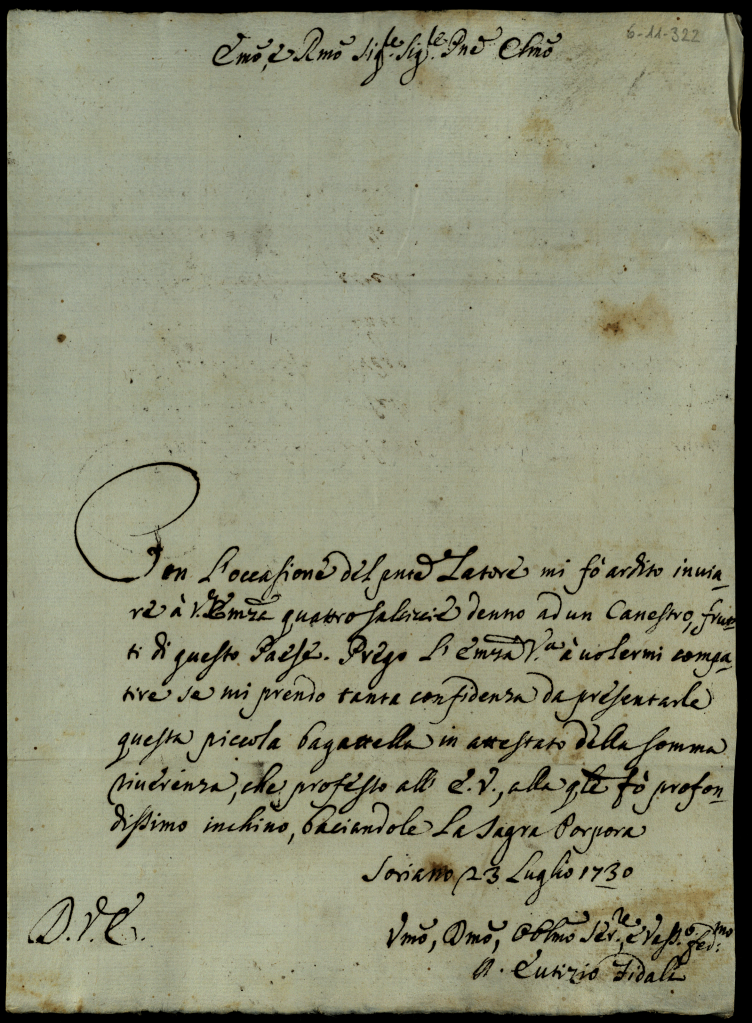 6-11-322
Emõ, è Rmõ Sig.re Sig.re Pñe Clmõ
Con L'occasione del pñte Latore mi fò ardito invia-
re à V.ra Emza quattro salsiccie dentro ad un Canestro, frut-
ti di questo Paese. Prego L'Emza V.a à volermi compa-
tire se mi prendo tanta confidenza da presentarle
questa piccola bagattella in attestato della somma
riverenza, che professo all' E.V., alla qle fò profon-
dissimo inchino, baciandole La Sagra Porpora
Soriano 23 Luglio 1730
D.V.E.
Vmõ, Dmõ, Oblmõ Ser.re, è Vass.o fed.mo
Eutizio Fidali